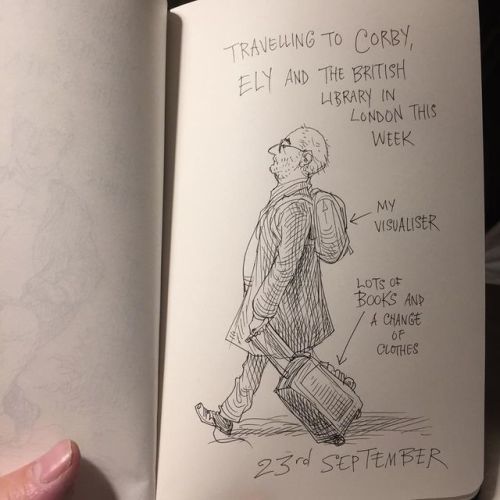 TRAVELLING TO CORBY,
ELY AND THE BRITISH
LIBRARY IN
LONDON THIS
WEEK
MY
VISUALISER
LOTS OF
BOOKS AND
A CHANGE
OF
CLOTHES
23rd SEPTEMBER